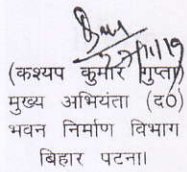 27/11/19
(कश्यप कुमार गुप्ता)
मुख्य अभियंता (द०)
भवन निर्माण विभाग
बिहार पटना।